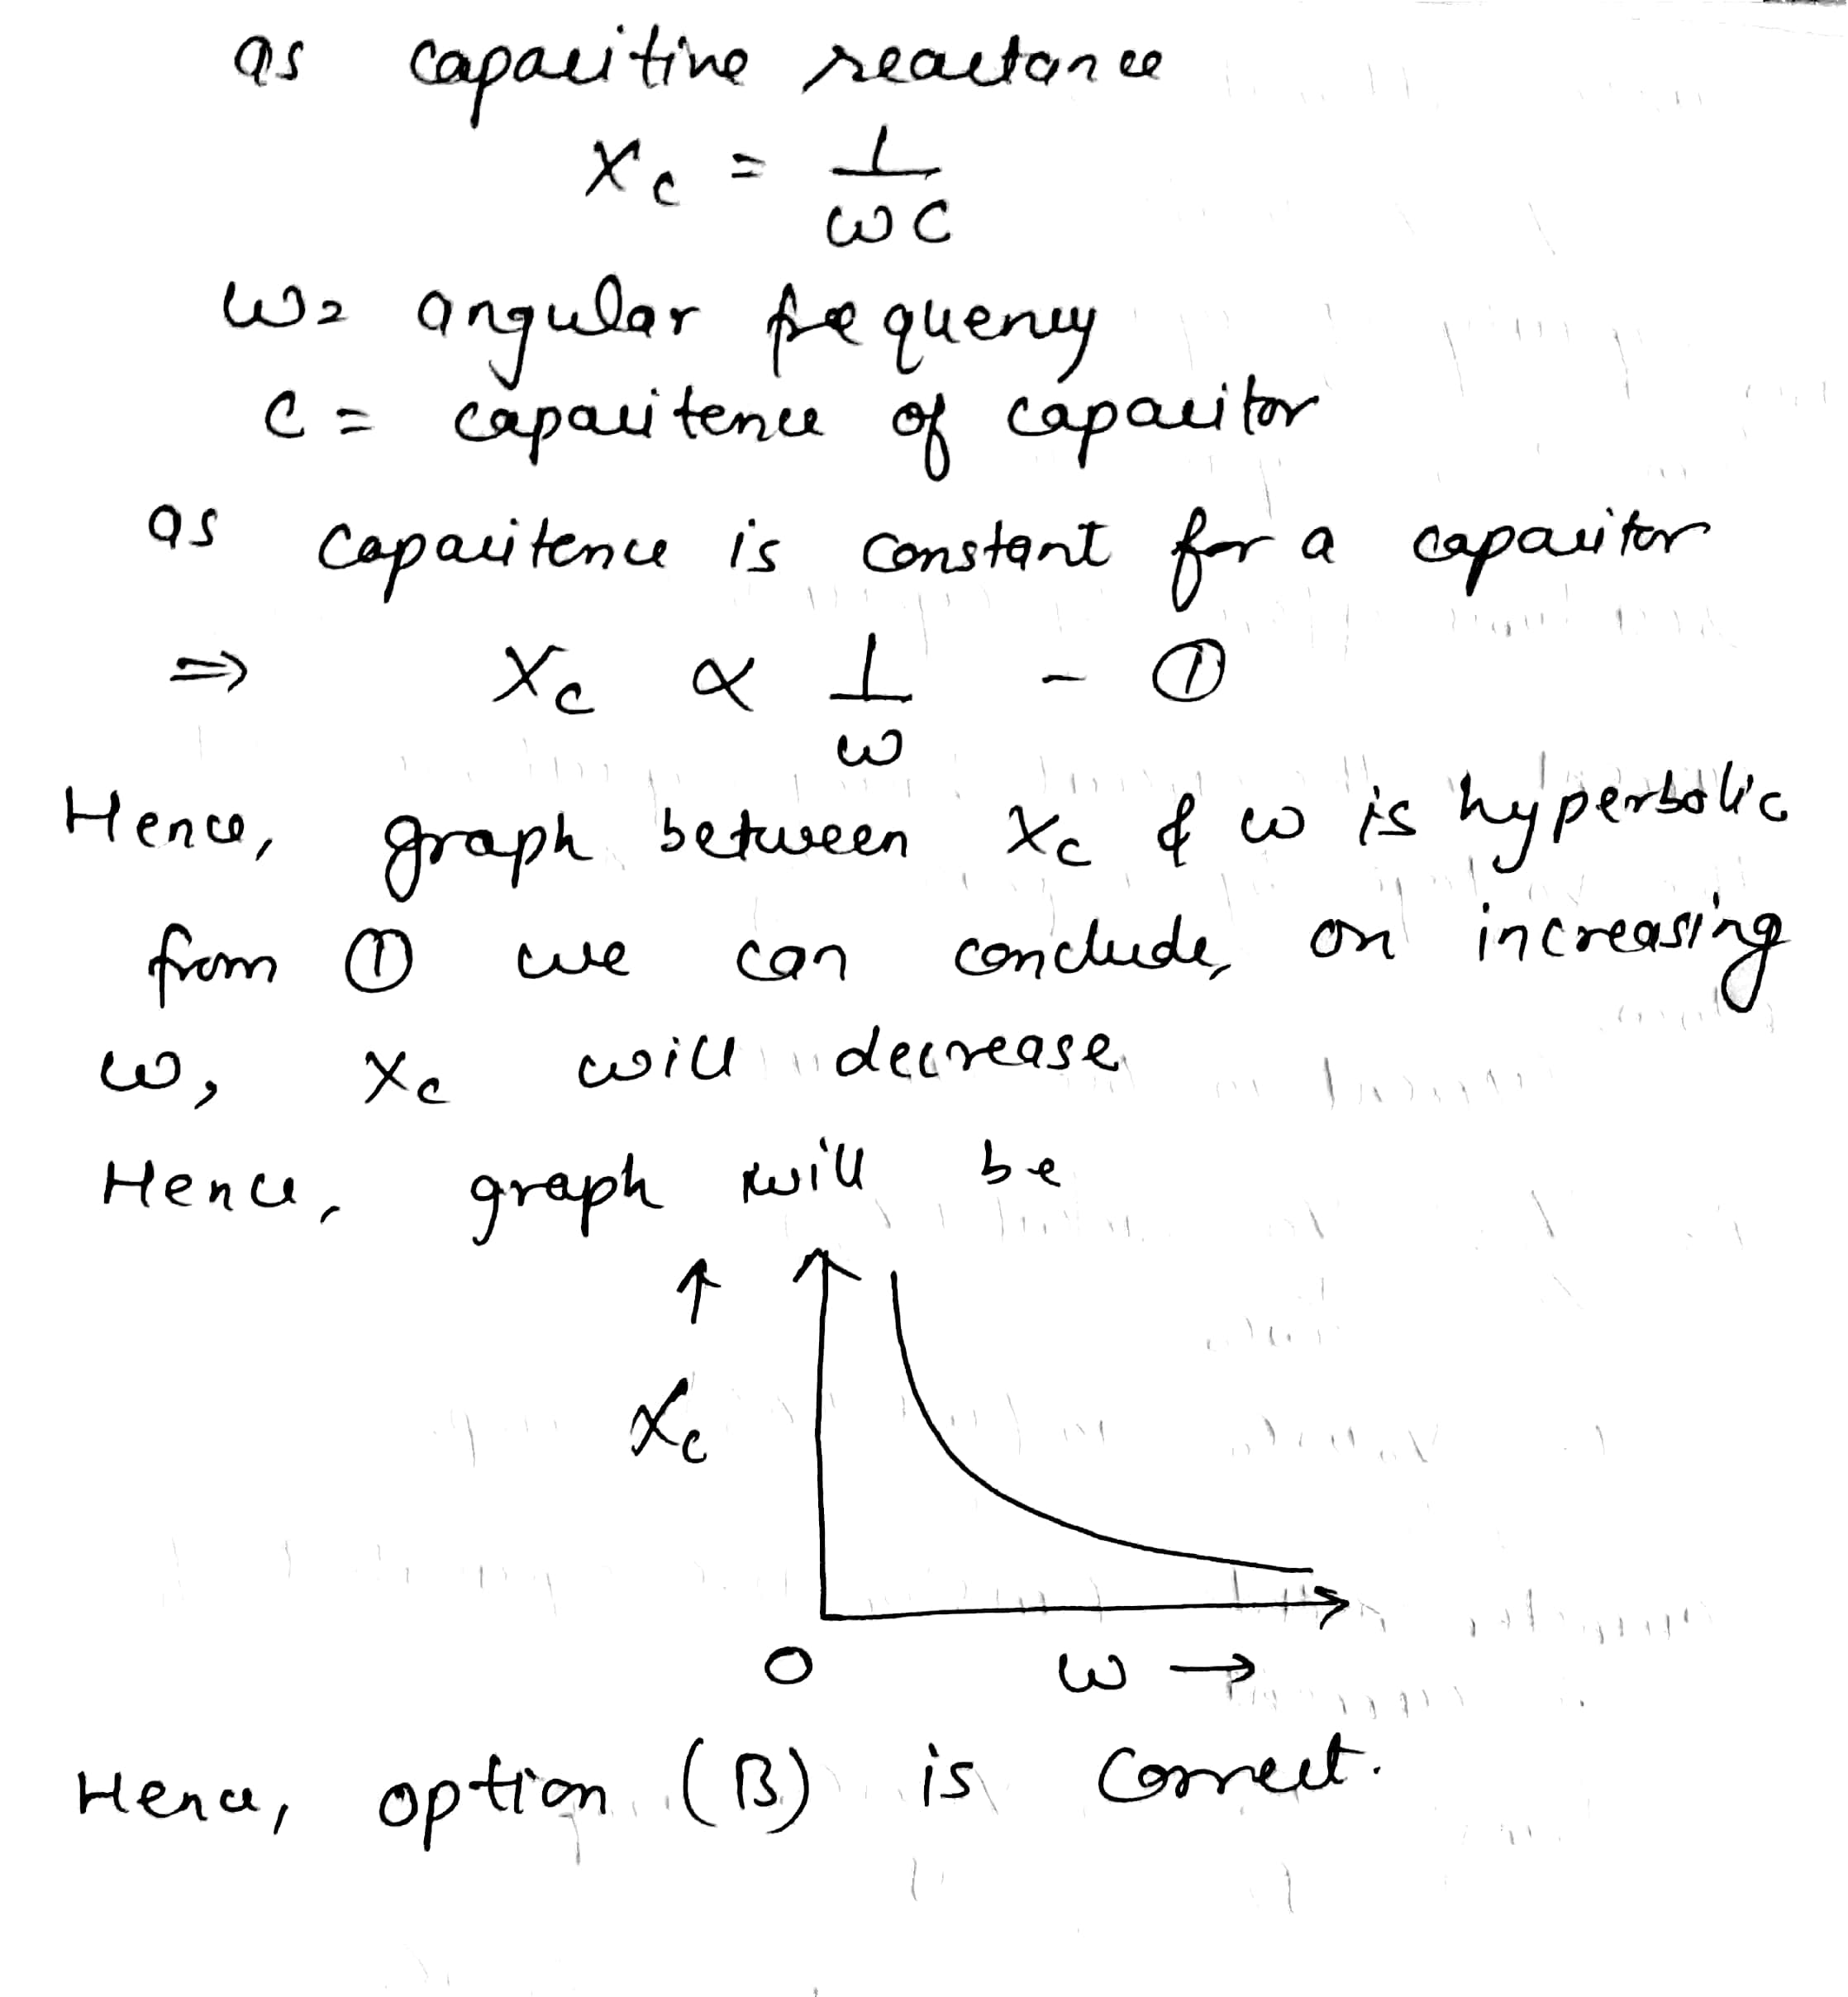 as capacitive reactance
Xc = 1/ωC
ω = angular frequency
C = capacitence of capacitor
as capacitence is constant for a capacitor
⇒ Xc ∝ 1/ω - ①
Hence, graph between Xc & ω is hyperbolic
from ① we can conclude, on increasing
ω, Xc will decrease
Hence, graph will be
↑
Xc
O ω →
Hence, option (B) is correct.